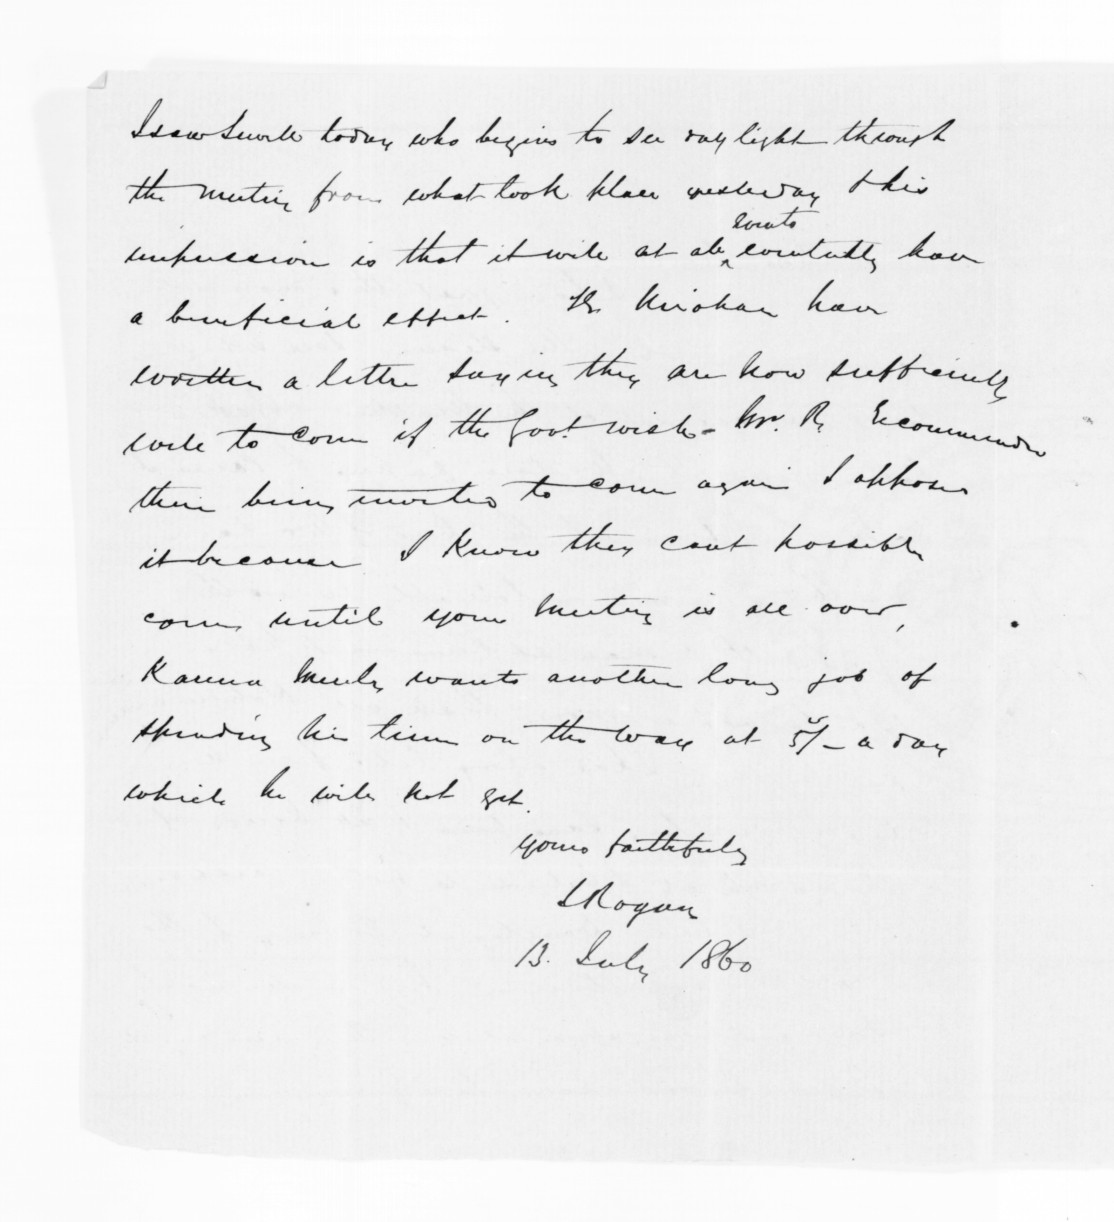 I saw Swile today who begins to see daylight through
the meeting from what took place yesterday & his
impression is that it will at all events eventually have
a beneficial effect. The have
written a letter saying they are now sufficiently
well to come if the Govt. wish - Mr. R. recommends
their being invited to come again I oppose
it because I know they cant possibly
come until your meeting is all over,
wants another long job of
spending his time on the way at 5/- a day
which he will not get.
Yours faithfully
Rogan
13. July 1860